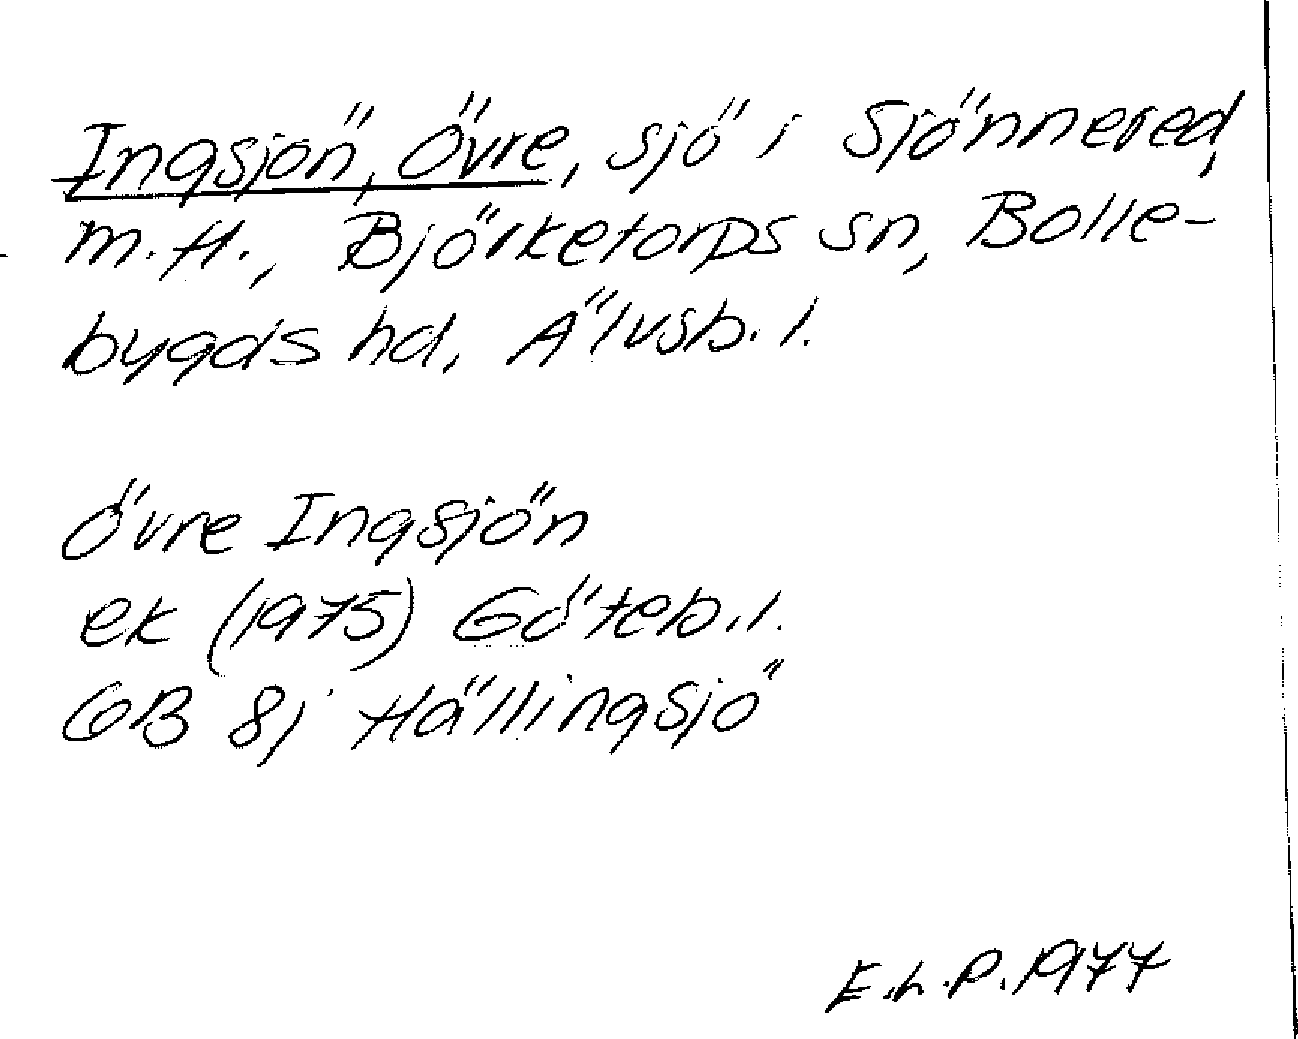 Ingsjön, Övre, sjö i Sjönnered,
m.fl., Björketorps sn, Bolle-
bygds hd, Älvsb. l.
Övre Ingsjön
ek (1975) Göteb. l.
GB 8j Hällingsjö
E.L.P. 1977